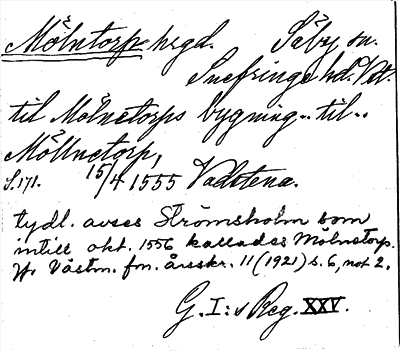 Mölntorp hrgd. Säby sn.
Snefringe hd. Vstm.
til Mölnetorps bygning .. til ..
Möllnetorp,
S. 171. 15/4 1555 Vadstena.
tydl. avses Strömsholm som
intill okt. 1556 kallades Mölnetorp.
Jfr Västm. fn. årsskr. 11 (1921) s. 6, not 2.
G. I:s Reg. XXV.